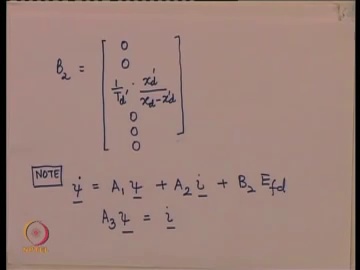 B₂ = [ 0
0
1/T_d' · x_d'/(x_d − x_d')
0
0
0 ]
NOTE ψ̇ = A₁ ψ + A₂ i + B₂ E_fd
A₃ ψ = i
NPTEL